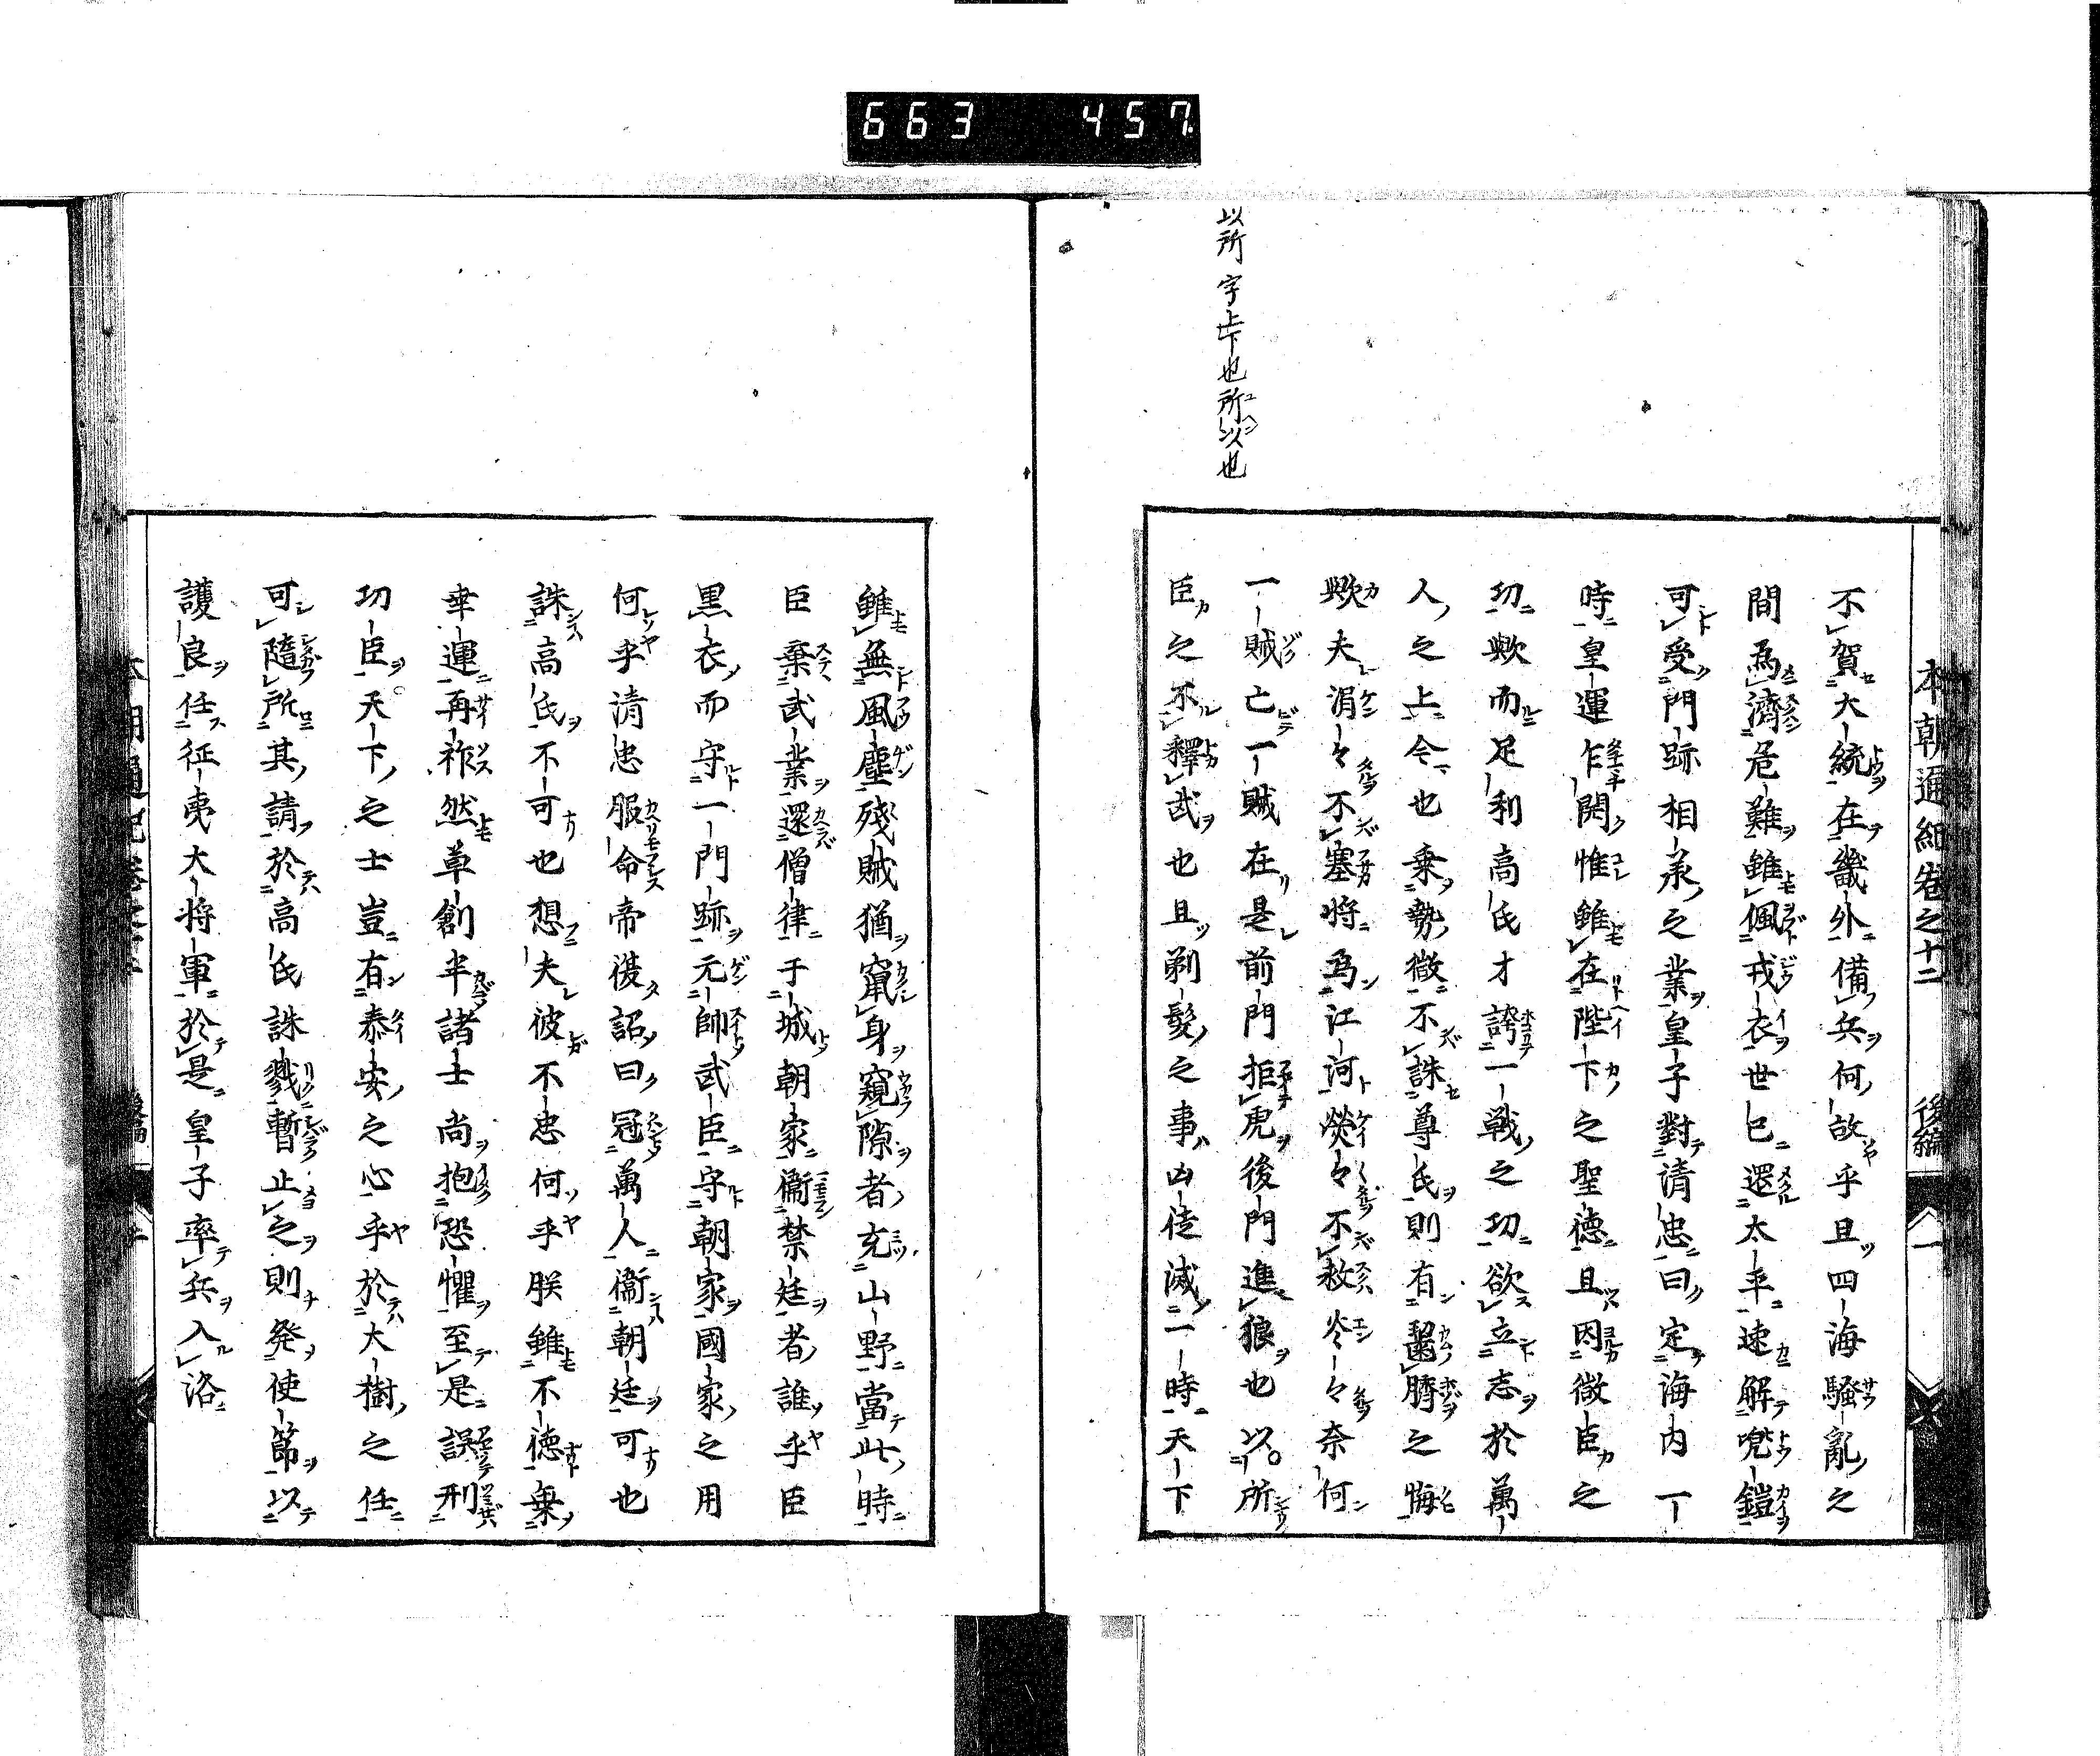 663 457
以所字上下也所以也
本朝通紀卷之十二 後編 一
不賀大統在畿外備兵何故乎且四海騷亂之
間為濟危難雖佩戎衣世已還太平速解兜鎧
可受門跡相承之業皇子對清忠曰定海内一
時皇運乍開惟雖在陛下之聖德且因微臣之
功歟而足利高氏才誇一戰之功欲立志於萬
人之上今也乘勢微不誅尊氏則有噬臍之悔
歟夫涓々不塞將為江河熒々不救炎々奈何
一賊亡一賊在是前門拒虎後門進狼也以所
臣之不釋武也且剃髮之事凶徒滅一時天下
雖無風塵殘賊猶竄身窺隙者充山野當此時
臣棄武業還僧律于城朝家衞禁廷者誰乎臣
黒衣而守一門跡元帥武臣守朝家國家之用
何乎清忠服命帝復詔曰冠萬人衞朝廷可也
誅高氏不可也想夫彼不忠何乎朕雖不德棄
幸運再祚然草創半諸士尚抱恐懼至是誤刑
功臣天下之士豈有泰安之心乎於大樹之任
可隨所其請於高氏誅戮暫止之則発使節以
護良任征夷大将軍於是皇子率兵入洛